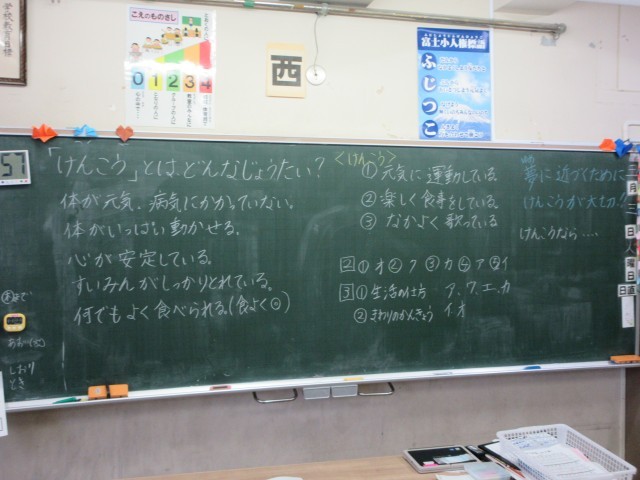 学校教育目標
こえのものさし
0 1 2 3 4
西
富士小人権標語
ふ
じ
つ
こ
57
「けんこう」とは、どんなじょうたい?
体が元気、病気にかかっていない。
体がいっぱい動かせる。
心が安定している。
すいみんがしっかりとれている。
何でもよく食べられる(食よく◎)
<けんこう>
①元気に運動している
②楽しく食事をしている
③なかよく歌っている
2 ①オ ②ウ ③カ ④ア ⑤イ
3 ①生活の仕方 ア、ウ、エ、カ
②まわりのかんきょう イ オ
夢に近づくために
けんこうが大切?
けんこうなら……
月
日
曜
日
日直
しおり
とき